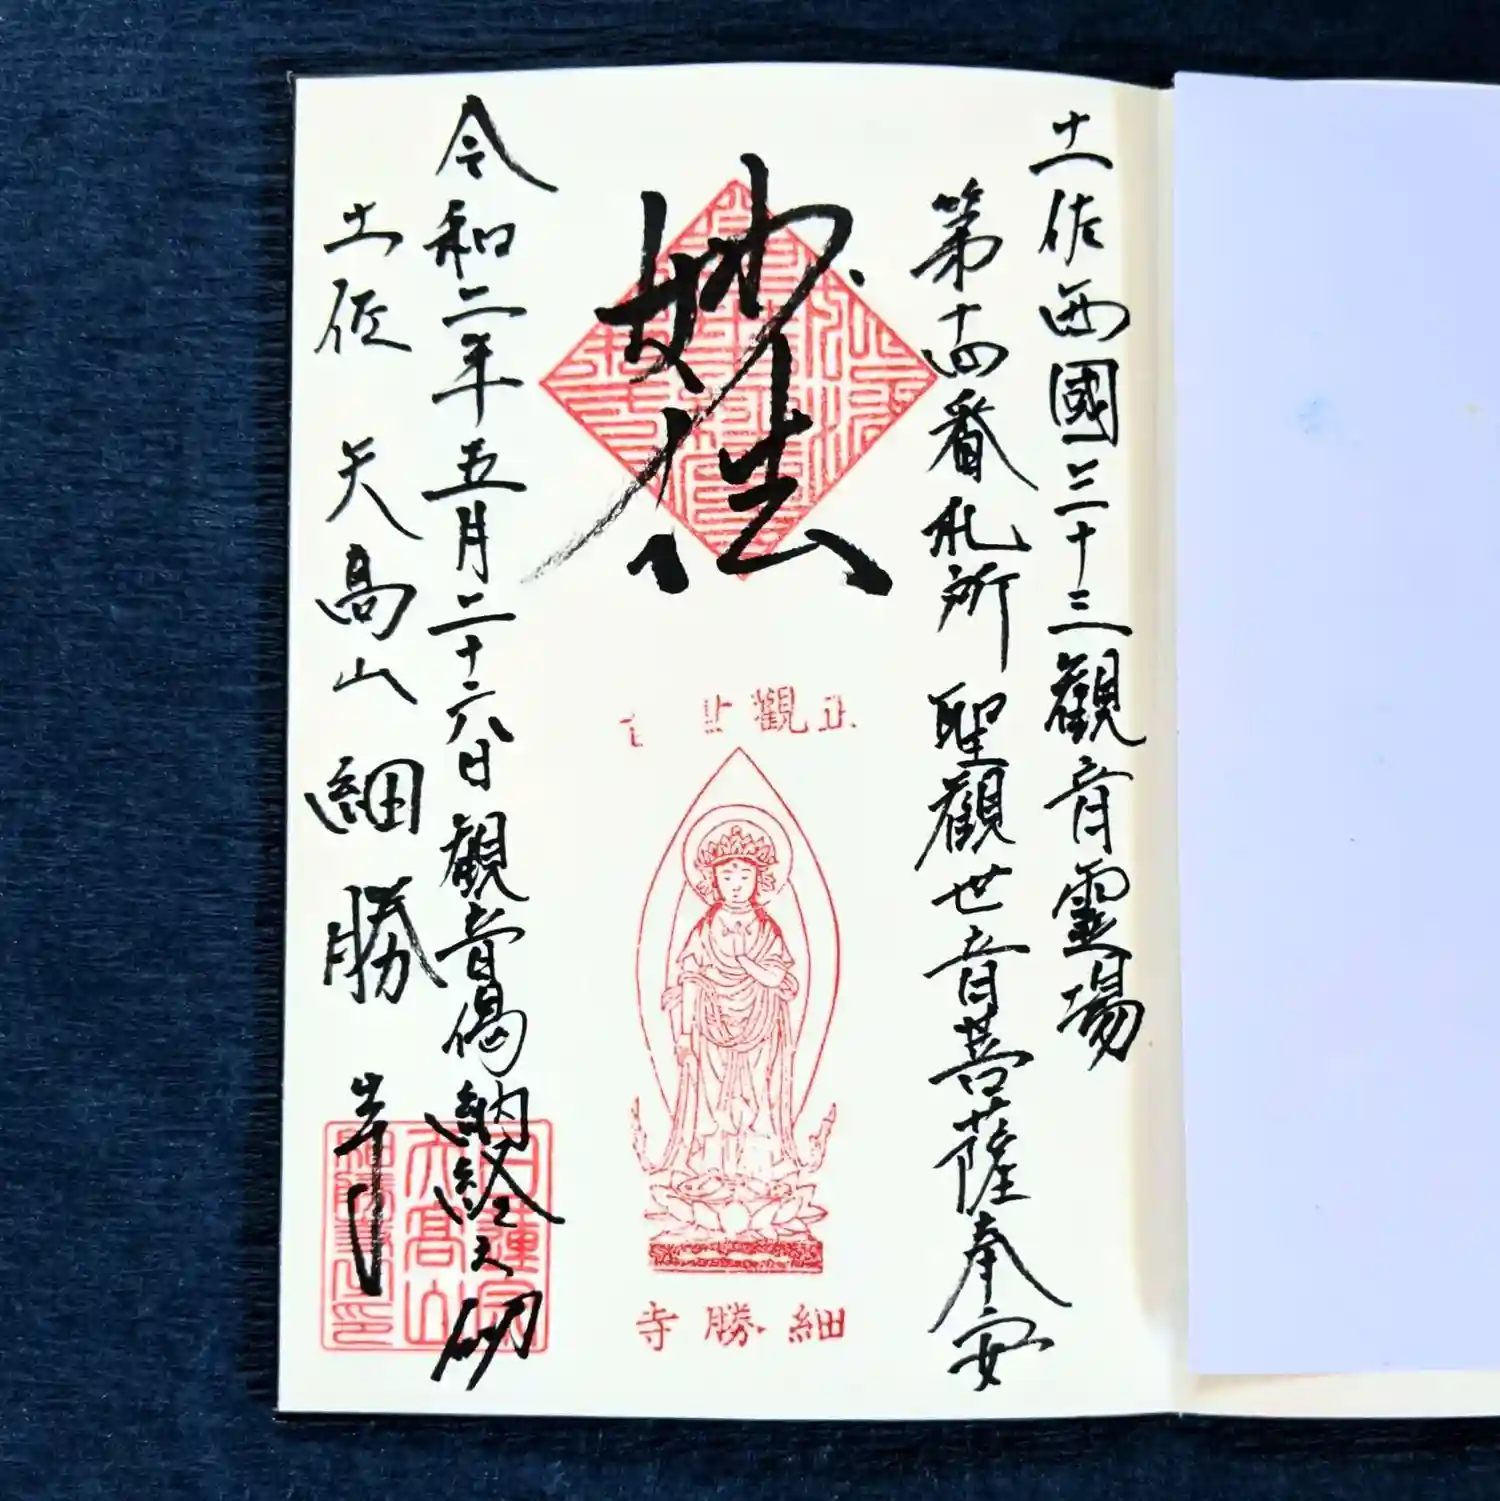 土佐西國三十三観音霊場
第十四番札所 聖観世音菩薩奉安
妙法
正観世
細勝寺
令和二年五月二十六日 観音偈納経之砌
土佐 天高山 細勝寺
日蓮宗
天高山
細勝寺印